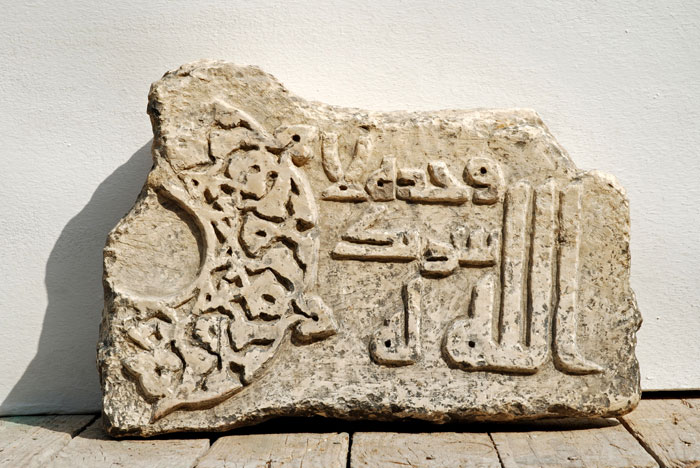 الله وحده لا
شريك
له